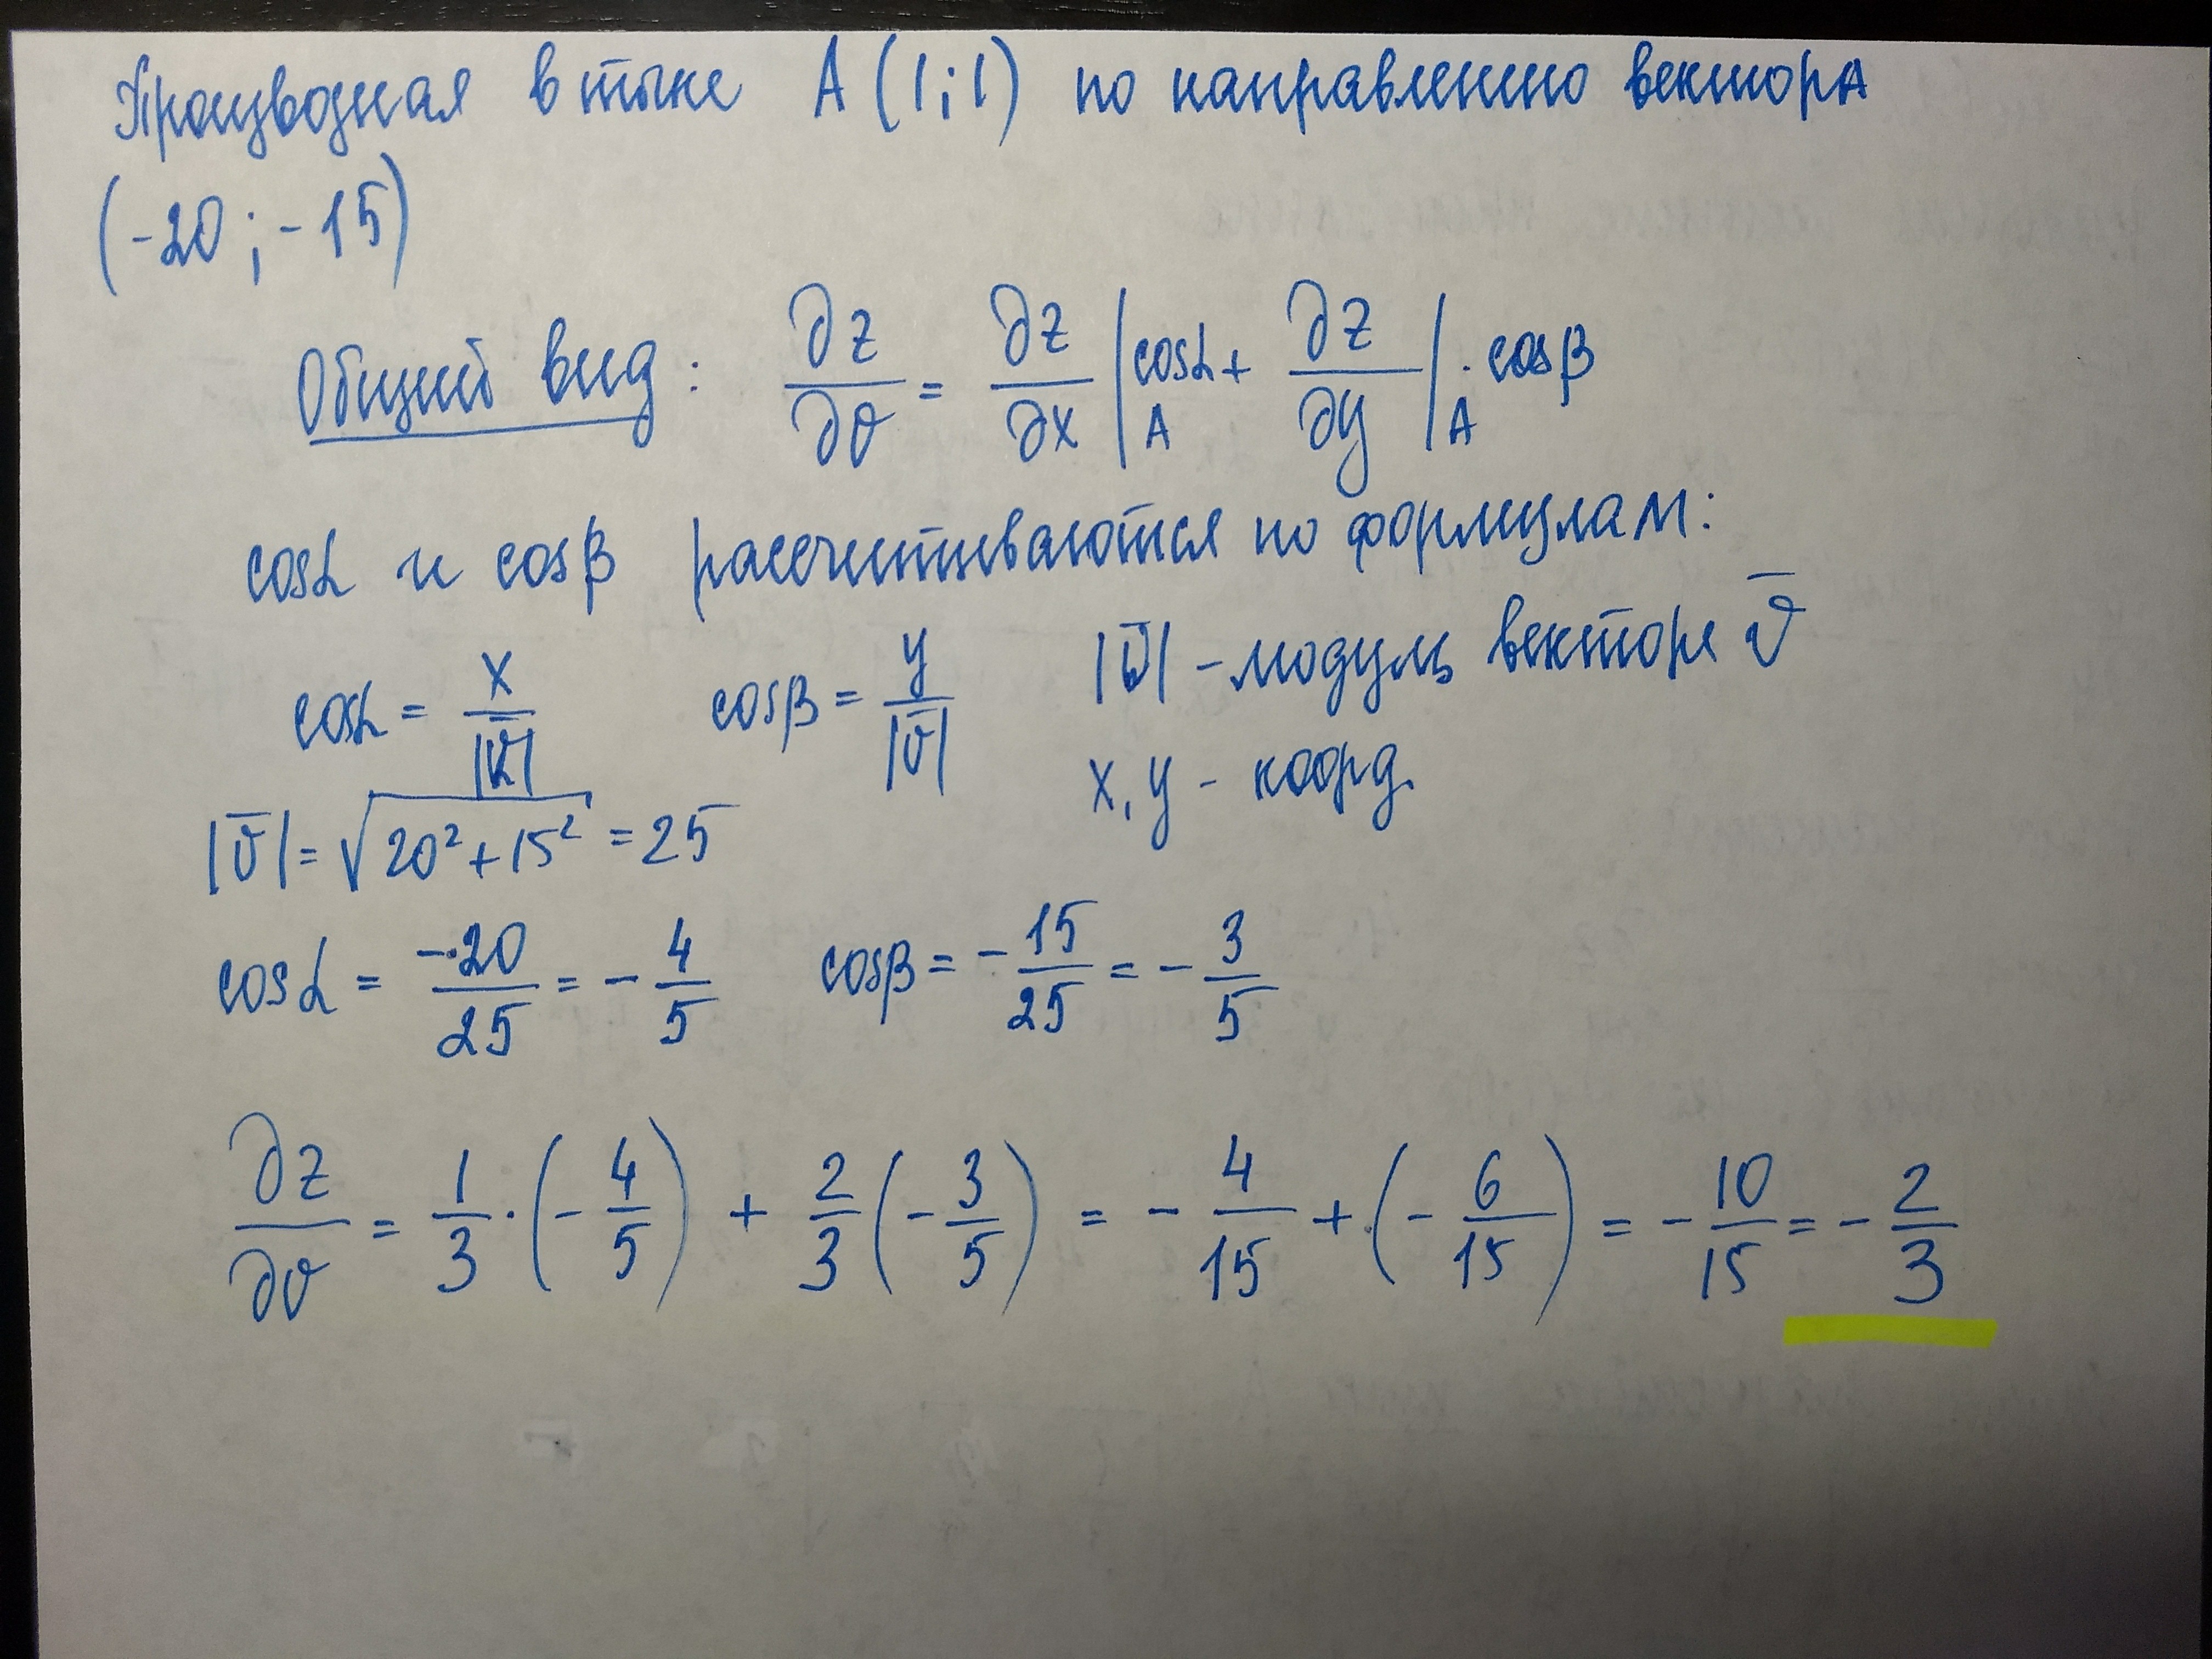 Производная в точке A (1;1) по направлению вектора
(-20; -15)
Общий вид: ∂z/∂v = ∂z/∂x |A cosα + ∂z/∂y |A · cosβ
cosα и cosβ рассчитываются по формулам:
cosα = x/|v̄| cosβ = y/|v̄| |v̄| - модуль вектора v̄
x, y - коорд.
|v̄| = √(20² + 15²) = 25
cosα = -20/25 = -4/5 cosβ = -15/25 = -3/5
∂z/∂v = 1/3 · (-4/5) + 2/3 (-3/5) = -4/15 + (-6/15) = -10/15 = -2/3